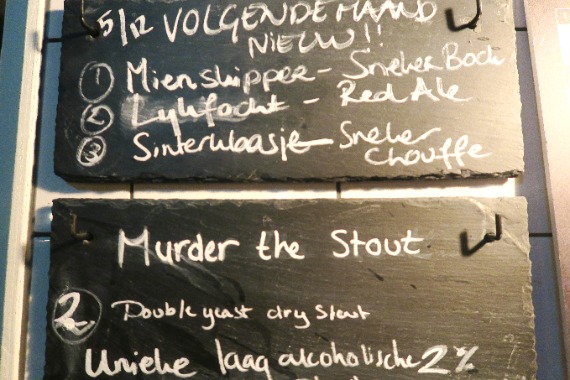 5/12 VOLGENDE MAAND
NIEUW!!
1 Mienskipper - Sneker Bock
2 Lykfacht - Red Ale
3 Sinterklaasje - Sneker
Chouffe
Murder the Stout
2 Double yeast dry stout
Unieke laag alcoholische 2%